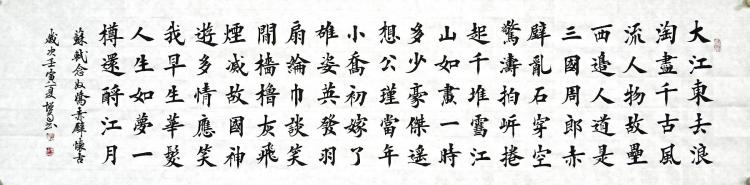 大江東去浪
淘盡千古風
流人物故壘
西邊人道是
三國周郎赤
壁亂石穿空
驚濤拍岸捲
起千堆雪江
山如畫一時
多少豪傑遙
想公瑾當年
小喬初嫁了
雄姿英發羽
扇綸巾談笑
間檣櫓灰飛
煙滅故國神
遊多情應笑
我早生華髮
人生如夢一
樽還酹江月
蘇軾念奴嬌赤壁懷古
歲次壬寅夏